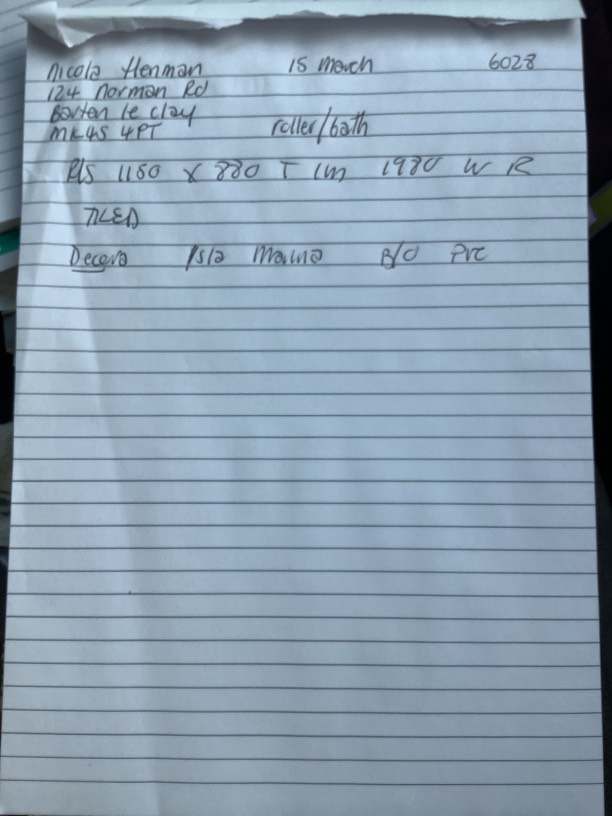 Nicola Henman 15 March 6028
124 Norman Rd
Barton le clay
MK45 4PT roller/bath
R/S 1160 x 880 T 1m 1980 W R
TILED
Decora Isla Marina B/O PVC